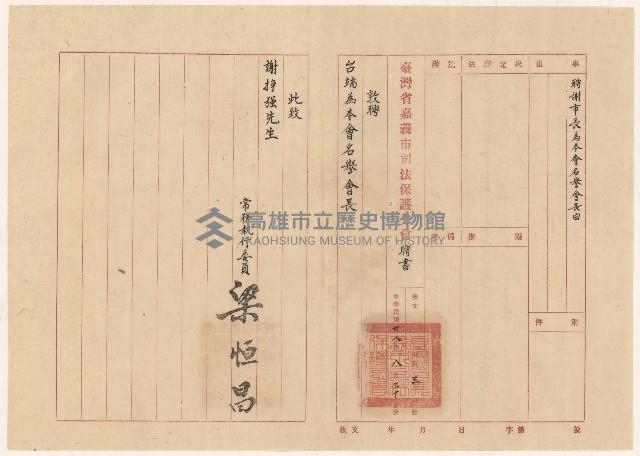 事由
聘謝市長為本會名譽會長由
附件
擬辦
決定辦法
批
備
臺灣省嘉義市司法保護會聘書
發文
中華民國卅八年八月三十日
收文 年 月 日 字第 號
敦聘
台端為本會名譽會長
此致
謝掙强先生
常務執行委員
梁恒昌
高雄市立歷史博物館
KAOHSIUNG MUSEUM OF HISTORY